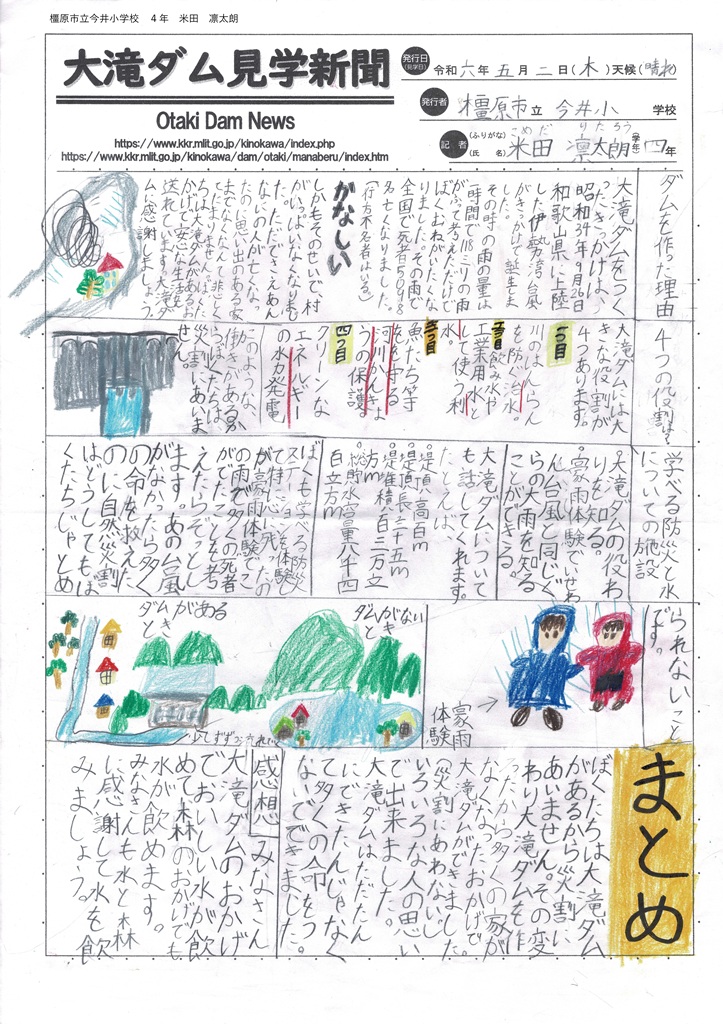 橿原市立今井小学校　4年　米田　凛太朗
大滝ダム見学新聞
Otaki Dam News
https://www.kkr.mlit.go.jp/kinokawa/index.php
https://www.kkr.mlit.go.jp/kinokawa/dam/otaki/manaberu/index.htm
発行日(見学日) 令和六年五月二日(木)天候(晴れ)
発行者 橿原市立 今井小 学校
記者 (ふりがな) こめだ りたろう
(氏名) 米田 凛太朗 (学年) 四年
ダムを作った理由
大滝ダムをつく
ったきっかけは、
昭和34年9月26日
和歌山県に上陸
した伊勢湾台風
がきっかけで誕生しま
した。
その時の雨の量は
一時間で118ミリの雨
がふって考えただけで
ぼくむねがいたくな
りました。その雨で
全国で死者5098
名もなくなりました。
(行方不名者はふくめる)
かなしい
しかもそのせいで、村
がいっぱいなくなりもど
ない人がなくなっ
たのに思い出のある家
までなくなんてこ
とたまりません。ぼくた
ちは大滝ダムがあるお
かげで安心な生活を
送れています。大滝ダ
ムに感謝しましょう。
4つの役割は?
大滝ダムには大
きな役割が
4つあります。
一つ目
川のはんらん
を防ぐ治水。
二つ目
飲み水や
工業用水と
して使う利
水。
三つ目
魚たちを守
る
河川かんきょ
うの保護。
四つ目
クリーンな
エネルギー
の水力発電
このような、
働きがあるか
らぼくたちは
災割にあいま
せん。
学べる防災と水
についての施設
・大滝ダムの役わ
りを知る。
・豪雨体験でいせわ
ん台風と同じぐ
らの大雨を知る
ことができる。
大滝ダムについて
も話してくれます。
たとえば、
・堤頂高百m
・堤頂長三十五m
・堤体積百三万立
方m
・総貯水容量八千四
百立方m
ぼくも学べる防災
ステーションを体験し
て特に心に死たの
が豪雨体験でこ
の雨で多くの死者
がでたことを考
えたらぞっとし
ます。あの台風
がなかったら多く
の命を救えた
のに自然災割
はどうしてもぼ
くたちじゃとめ
られないこと
です。
豪雨
体験
ダムがない
と
ダムがある
と
まとめ
ぼくたちは大滝ダム
があるから災割に
あいません。その変
わり大滝ダムを作
ったから多くの家が
なくなったおかげで
大滝ダムができました。
の災割にあわないし
いろいろな人の思い
で出来ました。
大滝ダムはただたん
にできたんじゃなく
て多くの命をつ
ないでできました。
感想
みなさん
大滝ダムのおかげ
でおいしい水が飲
めて森のおかげでも
水が飲めます。
みなさんも水と森
に感謝して水を飲
みましょう。